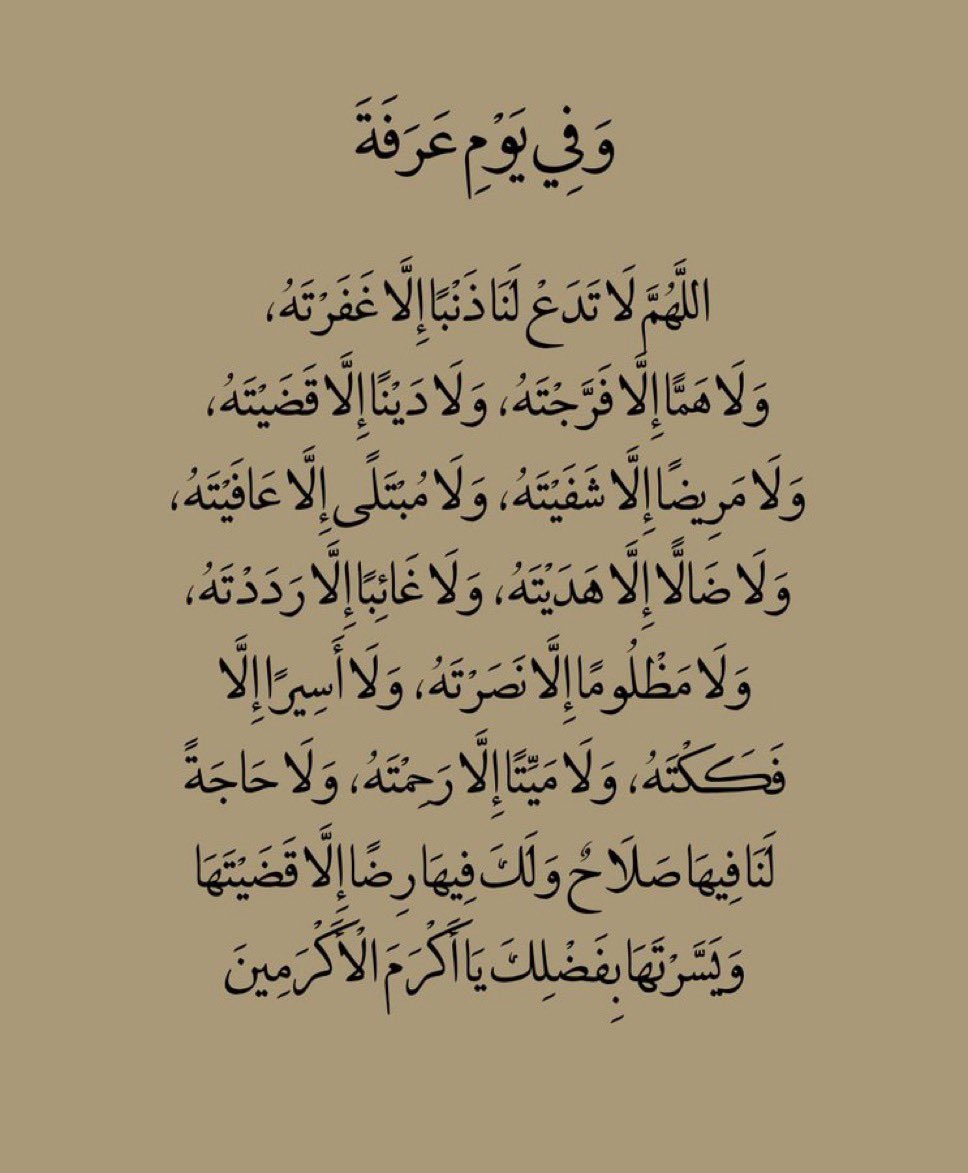 وَفِي يَوْمِ عَرَفَةَ
اللَّهُمَّ لَا تَدَعْ لَنَا ذَنْبًا إِلَّا غَفَرْتَهُ،
وَلَا هَمًّا إِلَّا فَرَّجْتَهُ، وَلَا دَيْنًا إِلَّا قَضَيْتَهُ،
وَلَا مَرِيضًا إِلَّا شَفَيْتَهُ، وَلَا مُبْتَلًى إِلَّا عَافَيْتَهُ،
وَلَا ضَالًّا إِلَّا هَدَيْتَهُ، وَلَا غَائِبًا إِلَّا رَدَدْتَهُ،
وَلَا مَظْلُومًا إِلَّا نَصَرْتَهُ، وَلَا أَسِيرًا إِلَّا
فَكَكْتَهُ، وَلَا مَيِّتًا إِلَّا رَحِمْتَهُ، وَلَا حَاجَةً
لَنَا فِيهَا صَلَاحٌ وَلَكَ فِيهَا رِضًا إِلَّا قَضَيْتَهَا
وَيَسَّرْتَهَا بِفَضْلِكَ يَا أَكْرَمَ الْأَكْرَمِينَ